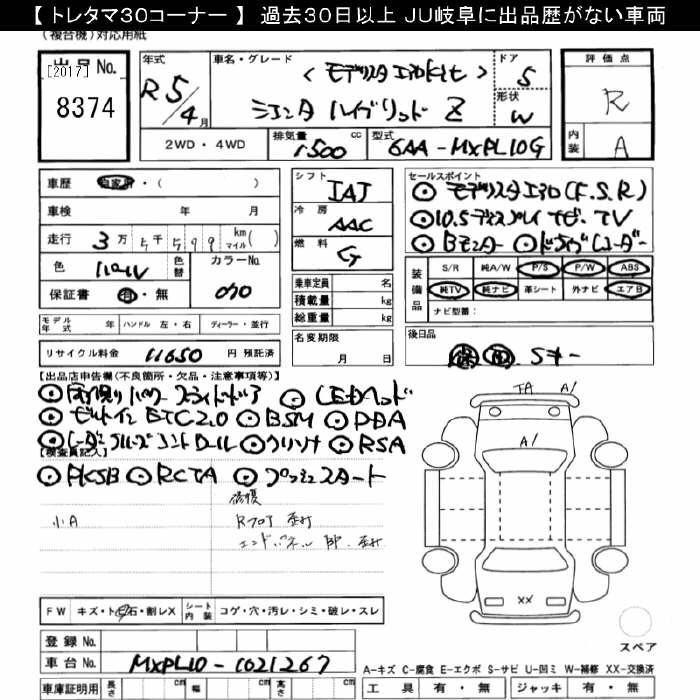 【 トレタマ30コーナー 】 過去30日以上 JU岐阜に出品歴がない車両
（複合機）対応用紙
出品No.
[2017]
8374
年式
R 5/4月
車名・グレード
＜モデリスタエアロKit＞
シエンタ ハイブリッド Z
ドア
5
形状
W
評価点
R
内装
A
2WD・4WD
排気量
1500 cc
型式
6AA-MXPL10G
車歴
自家用・（ ）
車検 年 月
走行 3万5千599 km マイル( )
色
パール
色替
カラーNo.
070
保証書 有・無
モデル年式 年
ハンドル 左・右
ディーラー・並行
リサイクル料金 11650 円 預託済
シフト
IAT
冷房
AAC
燃料
G
乗車定員 名
積載量 kg
総重量 kg
名変期限
月 日
セールスポイント
⊙モデリスタエアロ(F.S.R)
⊙10.5ディスプレイ ナビ.TV
⊙Bモニター ⊙ドライブレコーダー
装備品
S/R 純A/W P/S P/W ABS
純TV 純ナビ 革シート 外ナビ エアB
ナビ型番：
後日品
保 取 Sキー
【出品店申告欄(不良箇所・欠品・注意事項等)】
⊙両側パワースライドドア ⊙LEDヘッド
⊙ビルトインETC2.0 ⊙BSM ⊙PDA
⊙レーダークルーズコントロール ⊙クリソナ ⊙RSA
【検査員記入】
⊙PKSB ⊙RCTA ⊙プッシュスタート
修複
小A
Rフロア 歪打
エンドパネル 歪打
FW キズ・ト石・割レX
シート内装 コゲ・穴・汚レ・シミ・破レ・スレ
登録No.
車台No. MXPL10-1021267
車庫証明用 長さ cm 幅 cm 高さ cm
TA A1
A1
XX
スペア
A-キズ C-腐食 E-エクボ S-サビ U-凹ミ W-補修 XX-交換済
工具 有・無 ジャッキ 有・無